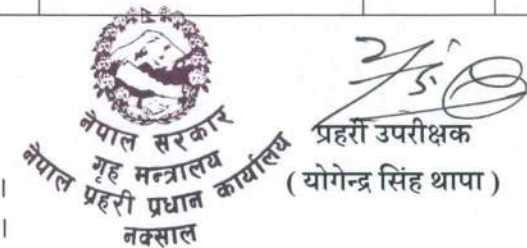 नेपाल सरकार
गृह मन्त्रालय
नेपाल प्रहरी प्रधान कार्यालय
नक्साल
प्रहरी उपरीक्षक
( योगेन्द्र सिंह थापा )
।
।